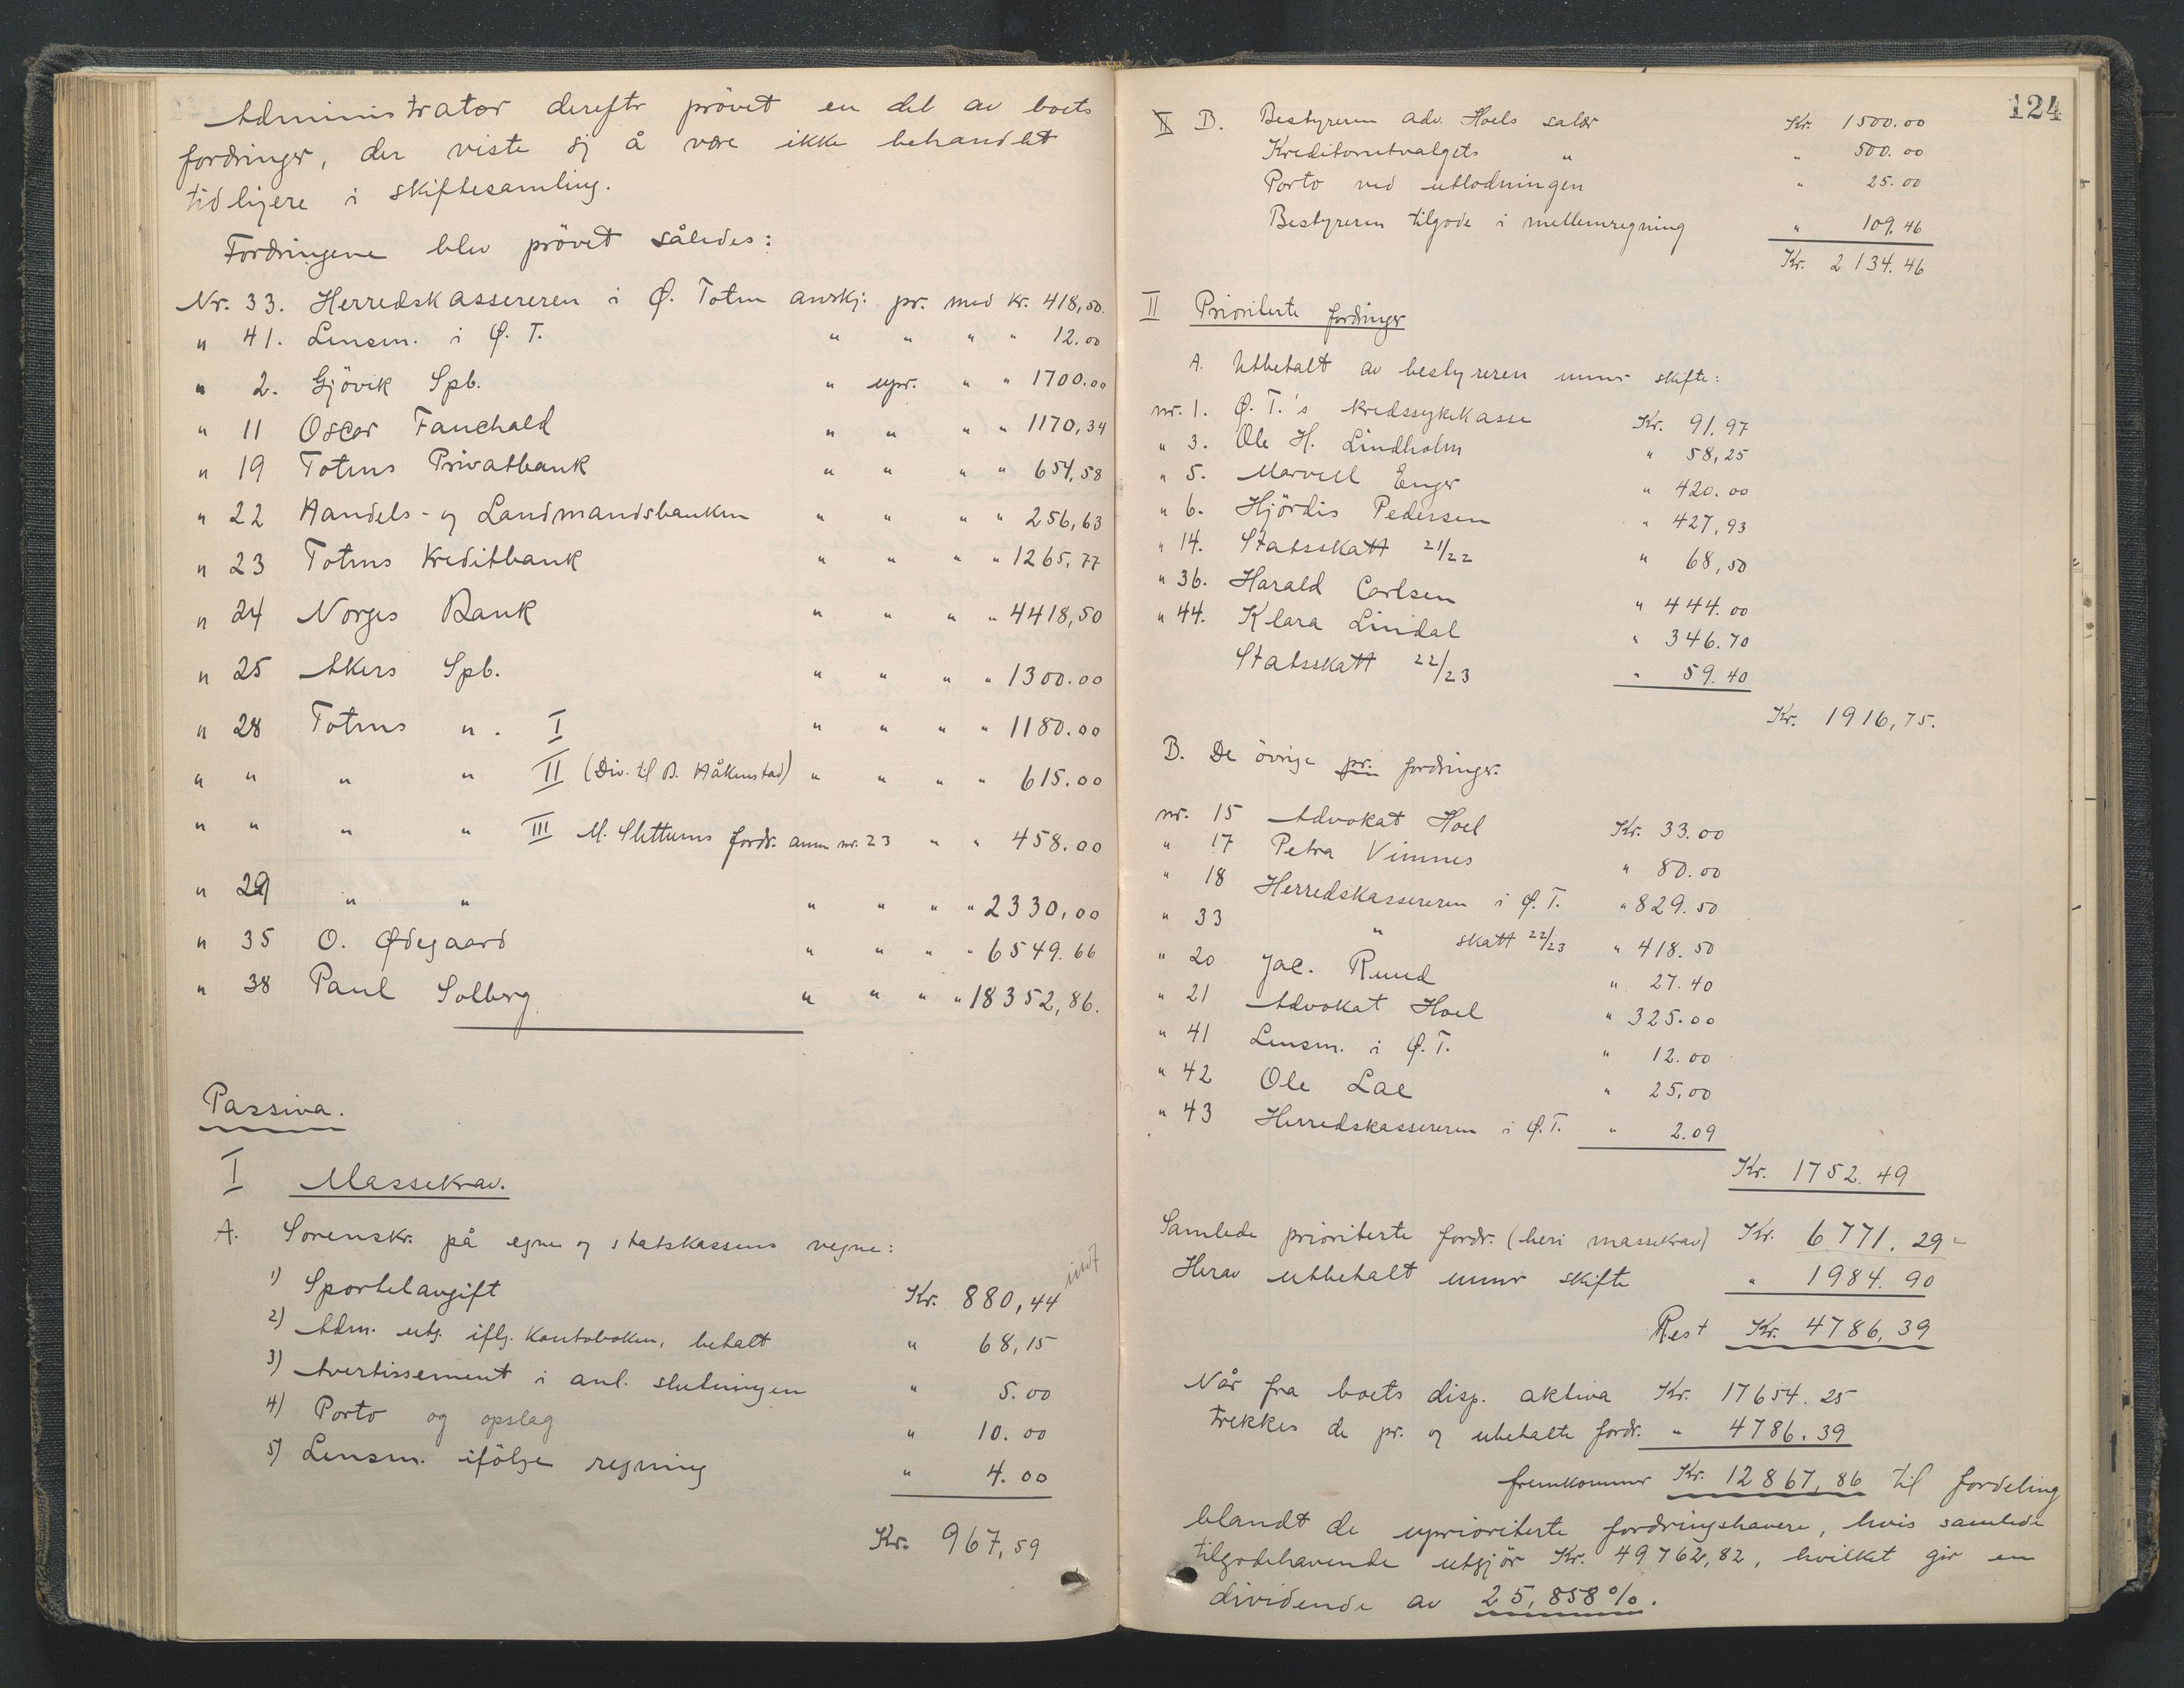 Administrator dereftr prövet en del av boets
fordringer, der viste sj å være ikke behandlet
tidligere i skiftesamling.
Fordringene blev prövet således:
Nr. 33. Herredskassereren i Ø. Toten anrkj: pr. med kr. 418,50.
" 41. Lensm. i Ø. T. " " " " 12.00
" 2. Gjövik Spb. " upr. " " 1700.00
" 11 Oscar Fauchald " " " " 1170,34
" 19 Totens Privatbank " " " " 654,58
" 22 Handels- og Landmandsbanken " " " " 256,63
" 23 Totens Kreditbank " " " " 1265,77
" 24 Norges Bank " " " " 4418,50
" 25 Akers Spb. " " " " 1300.00
" 28 Totens " . I " " " " 1180.00
" " " " II (Div. til B. Håkenstad) " " " " 615.00
" " " " III M. Slettums fordr. anm nr. 23 " " 458.00
" 29 " " " " " " 2330,00
" 35 O. Ødegaard " " " " 6549.66
" 38 Paul Solberg " " " " 18352,86.
Passiva.
I Massekrav.
A. Sorenskr. på egne og statskassens vegne:
1) Sportelavgift Kr. 880,44
2) Adm. utg. iflg. kontoboken, betalt " 68,15
3) Avertissement i anl. slutningen " 5.00
4) Porto og opslag " 10.00
5) Lensm. ifölge regning " 4.00
Kr. 967,59
124
B. Bestyreren adv. Hoels salær Kr. 1500.00
Kreditorutvalgets " " 500.00
Porto ved utlodningen " 25.00
Bestyreren tilgode i mellemregning " 109.46
Kr. 2134.46
II Prioriterte fordringer
A. Utbetalt av bestyreren under skifte:
nr. 1. Ø. T.'s kredssykekasse Kr. 91.97
" 3. Ole H. Lindholm " 58,25
" 5. Marvell Enger " 420.00
" 6. Hjördis Pedersen " 427,93
" 14. Statsskatt 21/22 " 68,50
" 36. Harald Carlsen " 444.00
" 44. Klara Lindal " 346.70
Statsskatt 22/23 " 59.40
Kr. 1916,75.
B. De övrige pr. fordringer.
nr. 15 Advokat Hoel Kr. 33.00
" 17 Petra Vimnes " 80.00
" 18 Herredskassereren i Ø. T. " 829.50
" 33 " skatt 22/23 " 418.50
" 20 Jac. Ruud " 27.40
" 21 Advokat Hoel " 325.00
" 41 Lensm. i Ø. T. " 12.00
" 42 Ole Lae " 25,00
" 43 Herredskassereren i Ø.T. " 2.09
Kr. 1752.49
Samlede prioriterte fordr. (heri massekrav) Kr. 6771.29
Herav utbetalt under skifte " 1984.90
Rest Kr. 4786,39
Når fra boets disp. aktiva Kr. 17654.25
trekkes de pr. og ubetalte fordr. " 4786.39
fremkommer Kr. 12867,86 til fordeling
blandt de uprioriterte fordringshavere, hvis samlede
tilgodehavende utgjör Kr. 49762,82, hvilket gir en
dividende av 25,858%.